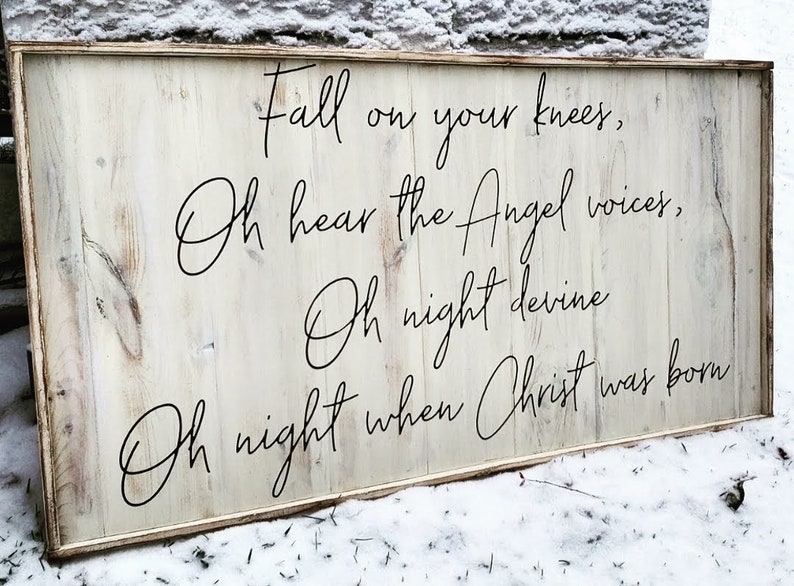 Fall on your knees,
Oh hear the Angel voices,
Oh night devine
Oh night when Christ was born